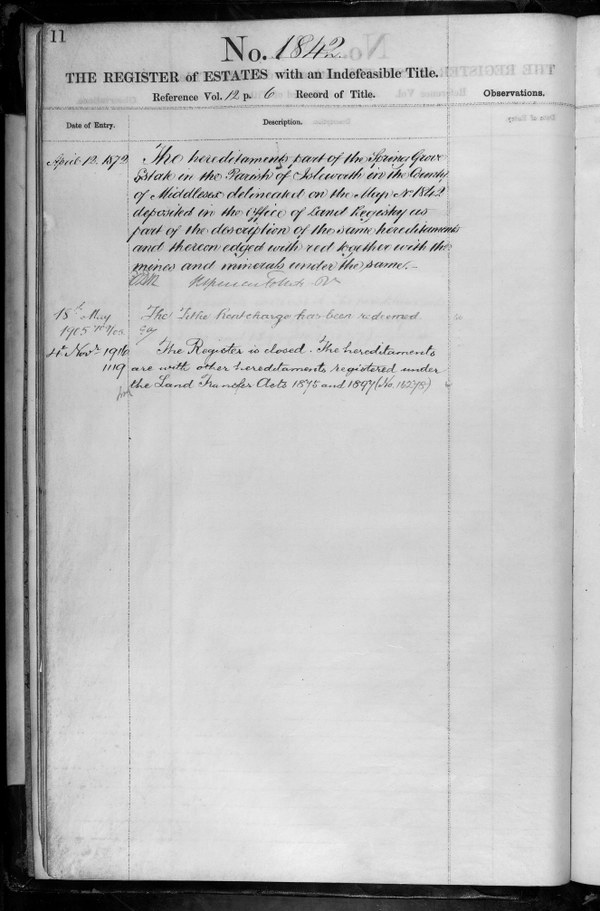 11
No. 1842
THE REGISTER of ESTATES with an Indefeasible Title.
Reference Vol. 12 p. 6 Record of Title.
Observations.
Date of Entry.
Description.
April 12. 1872
The hereditaments part of the Spring Grove
Estate in the Parish of Isleworth in the County
of Middlesex delineated on the Map No 1842
deposited in the Office of Land Registry as
part of the description of the same hereditaments
and thereon edged with red together with the
mines and minerals under the same.
18th May
1905
The Tithe Rentcharge has been redeemed
4th Novr 1916
The Register is closed. The hereditaments
1119
are with other hereditaments registered under
the Land Transfer Acts 1875 and 1897 (No.